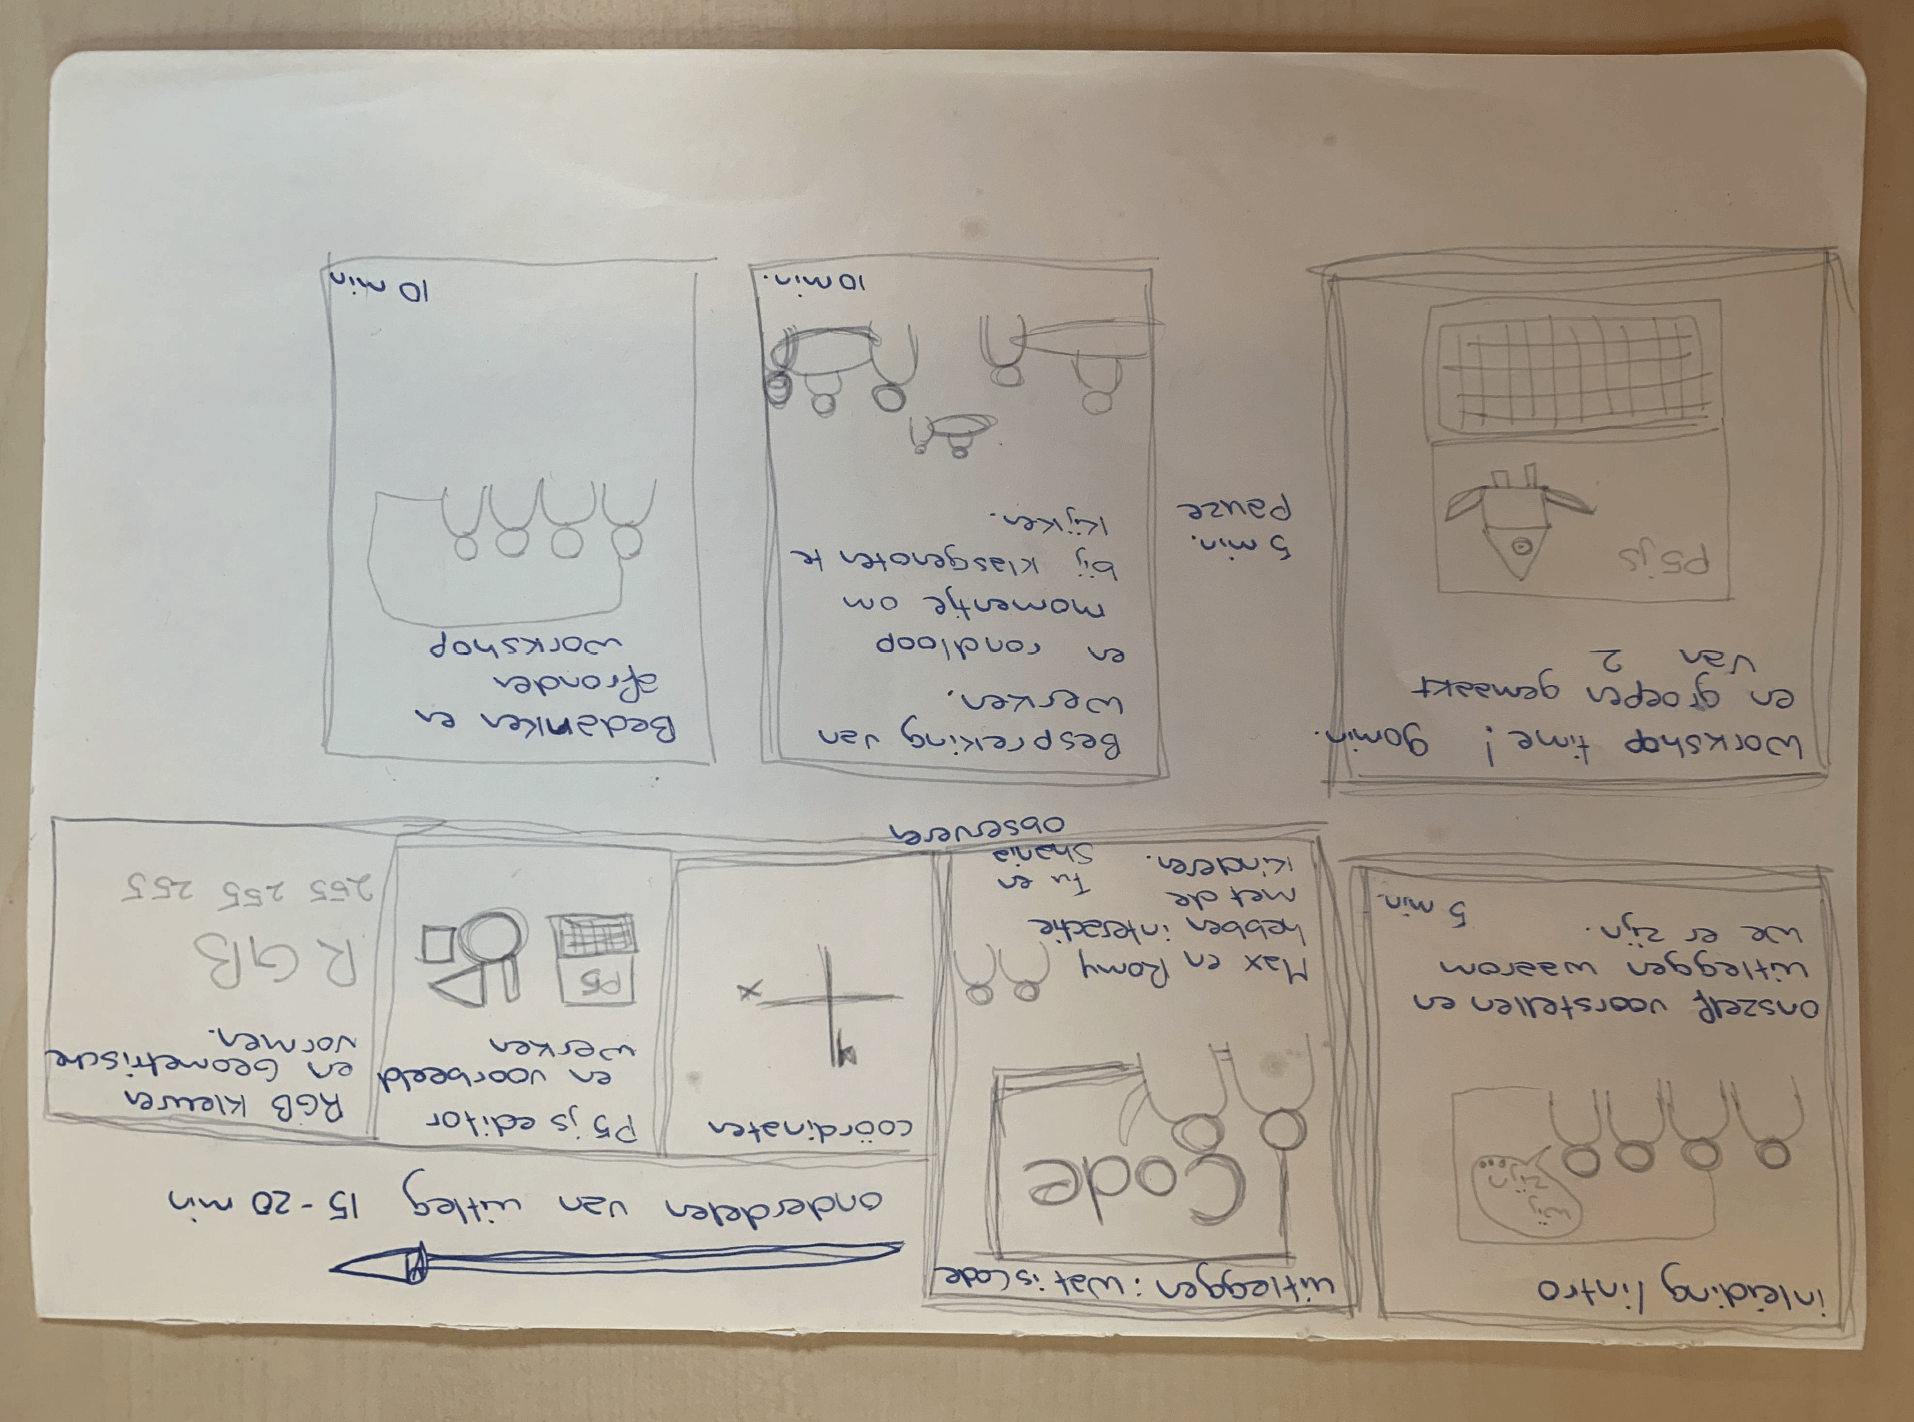 inleiding / intro
wij
zijn
...
onszelf voorstellen en
uitleggen waarom
we er zijn.
5 min.
uitleggen: wat is Code
Code
Max en Romy
hebben interactie
met de
kinderen.
Fu en
Shania
observeren
onderdelen van uitleg 15 - 20 min
coördinaten
y
x
P5 js editor
en voorbeeld
werken
P5
RGB kleuren
en Geometrische
vormen.
RGB
255 255 255
Workshop time! 90min.
en groepen gemaakt
van 2
P5 js
5 min.
pauze
Bespreking van
werken.
en rondloop
momentje om
bij klasgenoten te
kijken.
10 min.
Bedanken en
afronden
workshop
10 min